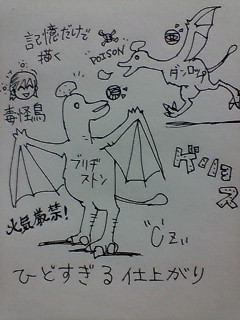 記憶だけで
描く
POISON
ダンロップ
毒怪鳥
ブリヂ
ストン
ゲリョス
火気厳禁!
ひどすぎる仕上がり